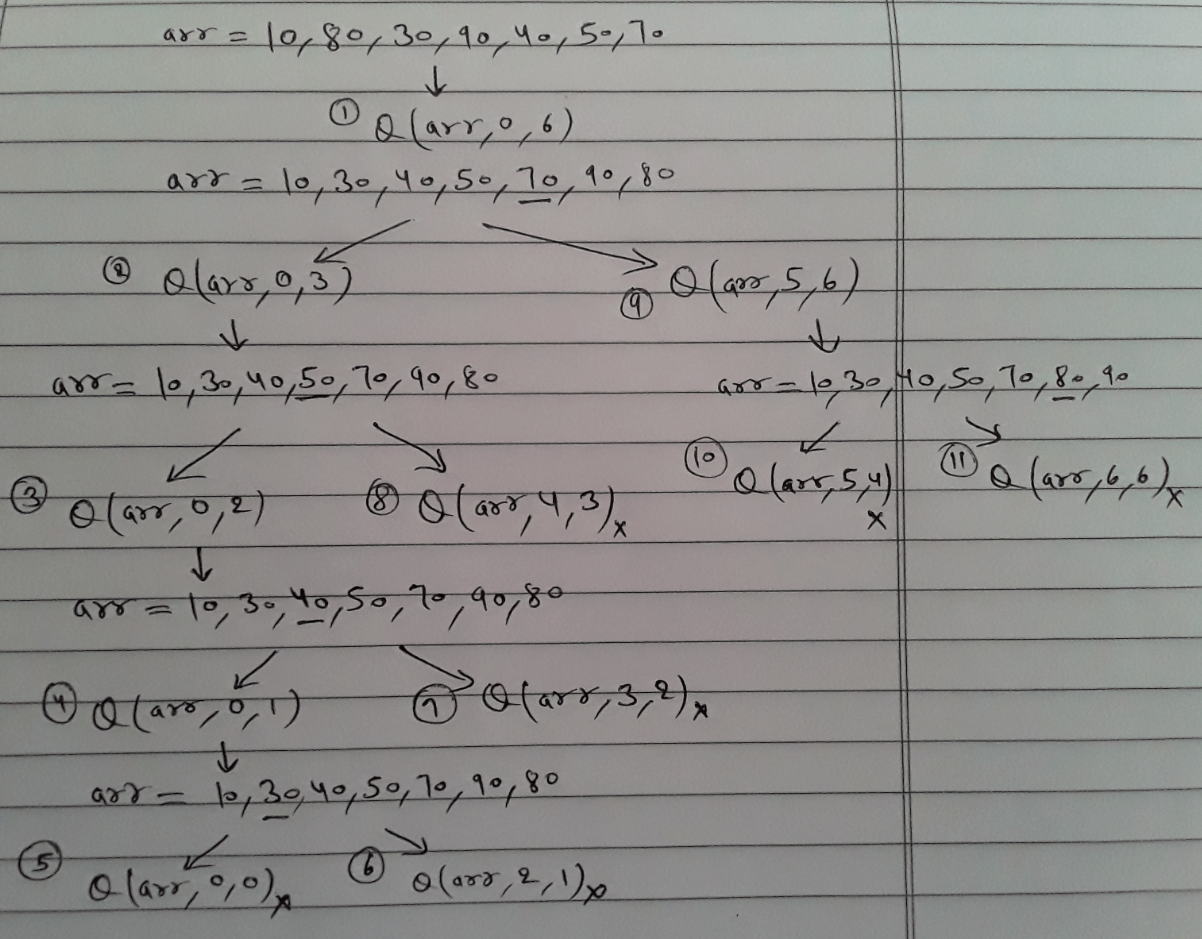 arr = 10, 80, 30, 90, 40, 50, 70
① Q(arr, 0, 6)
arr = 10, 30, 40, 50, 70, 90, 80
② Q(arr, 0, 3)
⑨ Q(arr, 5, 6)
arr = 10, 30, 40, 50, 70, 90, 80
arr = 10, 30, 40, 50, 70, 80, 90
③ Q(arr, 0, 2)
⑧ Q(arr, 4, 3) x
⑩ Q(arr, 5, 4) x
⑪ Q(arr, 6, 6) x
arr = 10, 30, 40, 50, 70, 90, 80
④ Q(arr, 0, 1)
⑦ Q(arr, 3, 2) x
arr = 10, 30, 40, 50, 70, 90, 80
⑤ Q(arr, 0, 0) x
⑥ Q(arr, 2, 1) x